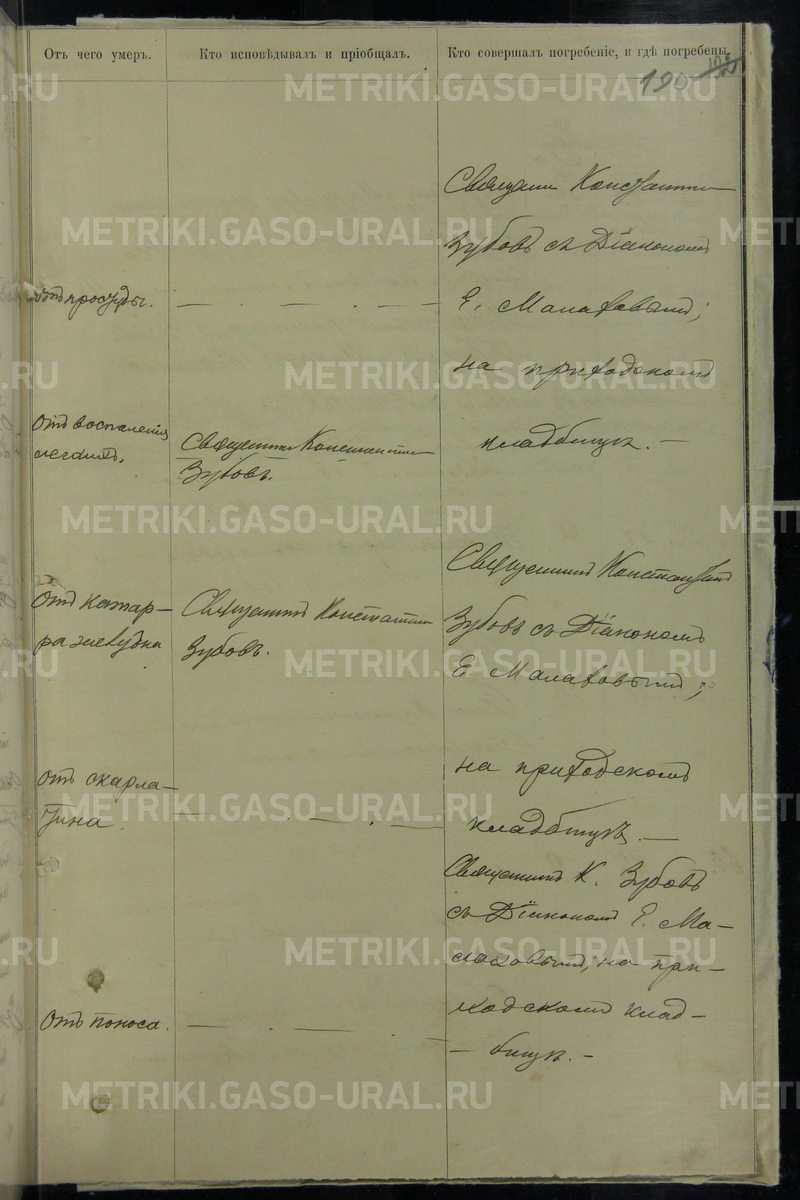 Отъ чего умеръ.
Кто исповѣдывалъ и пріобщалъ.
Кто совершалъ погребеніе, и гдѣ погребены.
190
METRIKI.GASO-URAL.RU
отъ простуды.
— . — . — —
Священн Константин
Зубовъ съ Діакономъ
Е. Малаховымъ;
на приходскомъ
кладбищѣ. —
Отъ воспаленія
легкихъ.
Священник Константин
Зубовъ.
Отъ катар-
ра желудка
Священникъ Константин
Зубовъ.
Священникъ Константинъ
Зубовъ съ Діакономъ
Е Малаховымъ;
на приходскомъ
кладбищѣ. —
отъ скарла-
тина.
— — . —
Отъ поноса.
— . — —
Священникъ К. Зубовъ
съ Діакономъ Е. Ма-
лаховымъ; на при-
ходскомъ клад-
- бищѣ. -